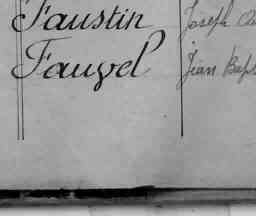 Faustin Joseph
Fauvel Jean Bap